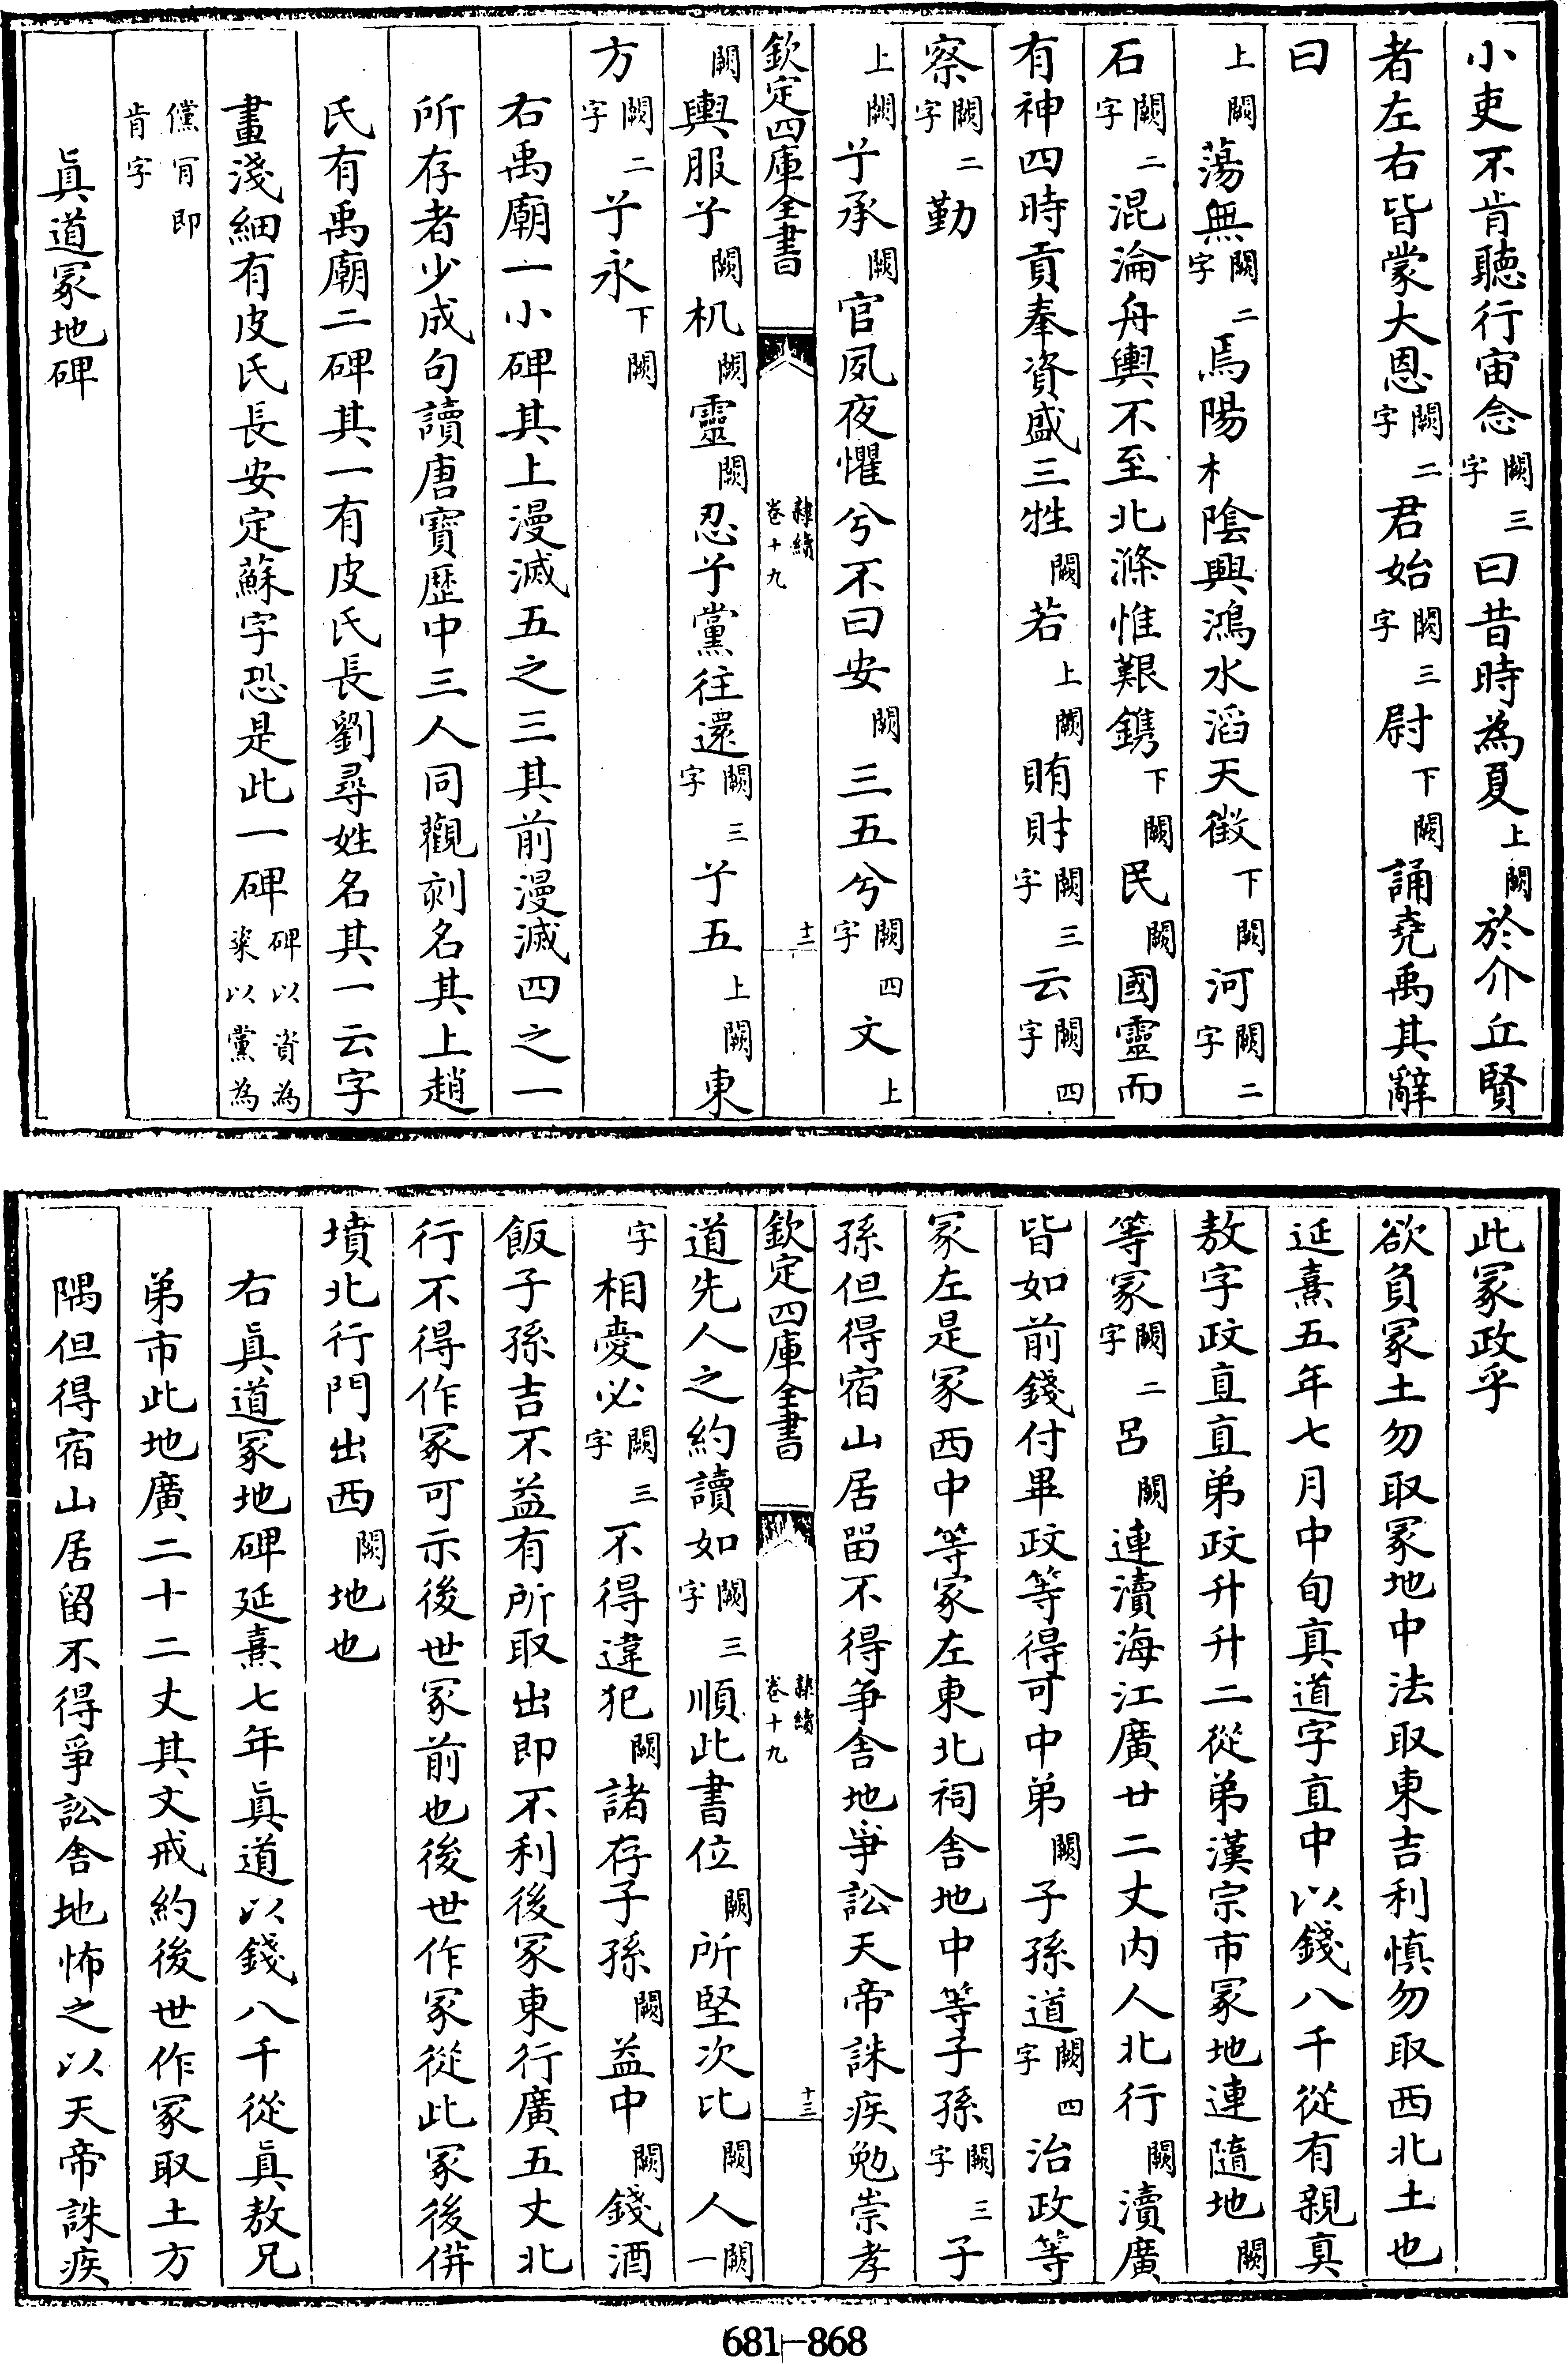 小吏不肯聽行宙念闕三字曰昔時為夏上闕於介丘賢
者左右皆蒙大恩闕二字君始闕三字尉下闕誦堯禹其辭
曰
上闕蕩無闕二字焉陽木陰興鴻水滔天徵下闕河闕二字
石闕二字混淪舟輿不至北滌惟艱鐫下闕民闕國靈而
有神四時貢奉資盛三牲闕若上闕賄財闕三字云闕四字
察闕二字勤
上闕兮承闕官夙夜懼兮不曰安闕三五兮闕四字文上
欽定四庫全書 隸續卷十九 十二
闕輿服兮闕机闕靈闕忍兮黨往還闕三字兮五上闕東
方闕二字兮永下闕
右禹廟一小碑其上漫滅五之三其前漫滅四之一
所存者少成句讀唐寶歷中三人同觀刻名其上趙
氏有禹廟二碑其一有皮氏長劉尋姓名其一云字
畫淺細有皮氏長安定蘇字恐是此一碑碑以資為粢以黨為
儻肎即肯字
眞道冢地碑
此冢政乎
欲負冢土勿取冢地中法取東吉利慎勿取西北土也
延熹五年七月中旬真道字直中以錢八千從有親真
敖字政直直弟政升升二從弟漢宗市冢地連隨地闕
等冢闕二字呂闕連瀆海江廣廿二丈内人北行闕瀆廣
皆如前錢付畢政等得可中弟闕子孫道闕四字治政等
冢左是冢西中等冢左東北祠舍地中等子孫闕三字子
孫但得宿山居畱不得争舍地爭訟天帝誅疾勉崇孝
欽定四庫全書 隸續卷十九 十三
道先人之約讀如闕三字順此書位闕所堅次比闕人闕一
字相愛必闕三字不得違犯闕諸存子孫闕益中闕錢酒
飯子孫吉不益有所取出即不利後冢東行廣五丈北
行不得作冢可示後世冢前也後世作冢從此冢後併
墳北行門出西闕地也
右眞道冢地碑延熹七年眞道以錢八千從眞敖兄
弟市此地廣二十二丈其文戒約後世作冢取土方
隅但得宿山居留不得爭訟舍地怖之以天帝誅疾
681-868